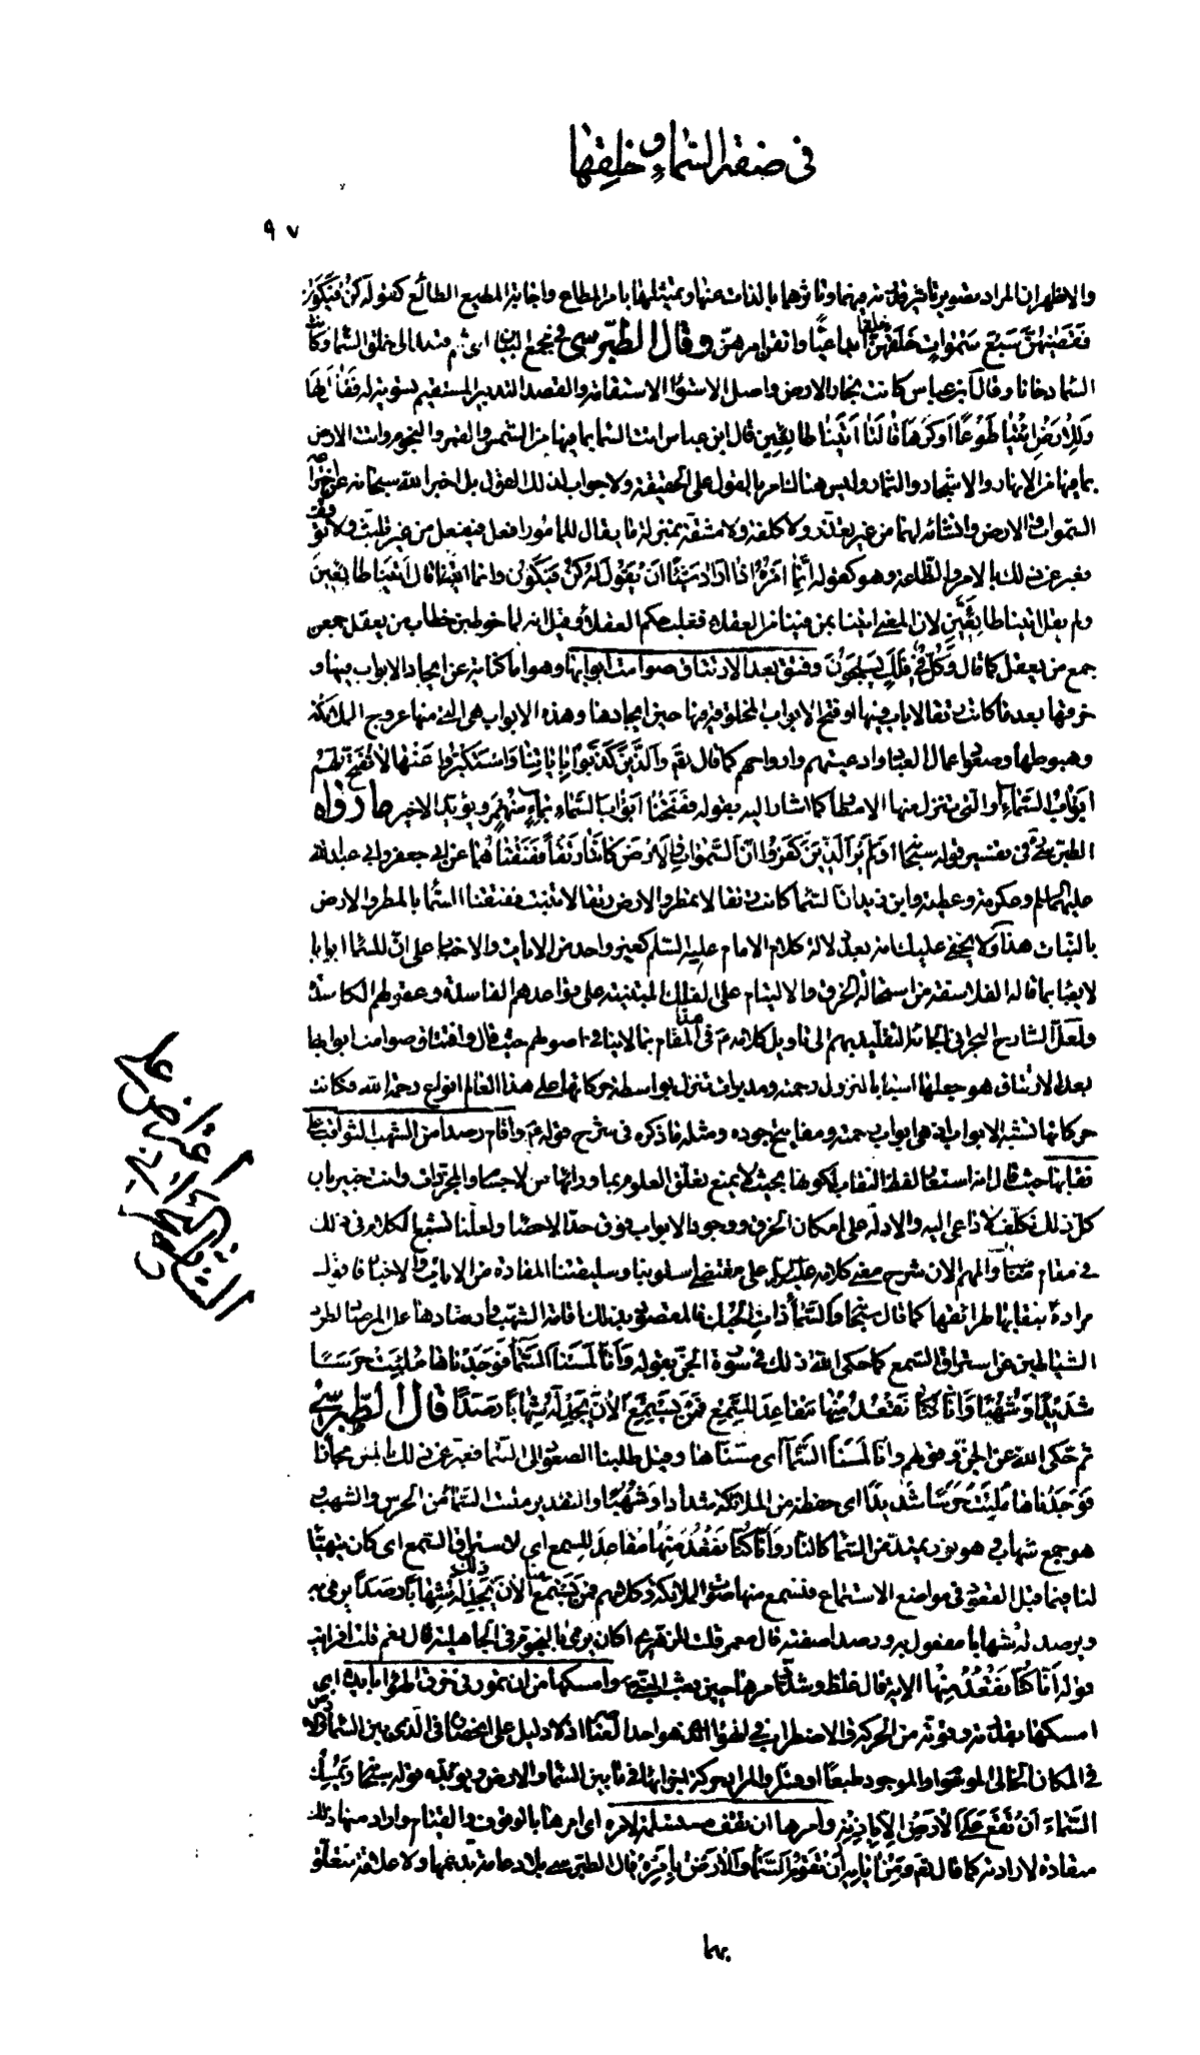 فى صفة السّماء و خلقها
٩٧
والاظهر ان المراد تصوير تاثير قدرته فيهما وتاثرهما بالذات عنها وتمثيلهما بامر المطاع واجابة المطيع الطائع كقوله كُنْ فَيَكُونُ
فَقَضٰيهُنَّ سَبْعَ سَمٰوٰاتٍ خلقهنّ خلقا ابداعيّا واتقن امرهنّ وقال الطّبرسى فى مجمع البيان اى ثم قصد الى خلق السّماء وكانت
السّماء دخانا وقال ابن عباس كانت بخار الارض واصل الاستواء الاستقامة والقصد للتدبير المستقيم تسوية له فَقٰالَ لَهٰا
وَلِلْاَرْضِ ائْتِيٰا طَوْعًا اَوْ كَرْهًا قٰالَتٰا اَتَيْنٰا طٰائِعِينَ قال ابن عباس اتت السّماء بما فيها من الشّمس والقمر والنّجوم واتت الارض
بما فيها من الانهار والاشجار والثمار وليس هناك امر بالقول على الحقيقة ولا جواب لذلك القول بل اخبر الله سبحانه عن اختراعه
السّموات والارض وانشائه لهما من غير تعذّر ولا كلفة ولا مشقّة بمنزلة ما يقال للمامور افعل فيفعل من غير تلبّث ولا توقف
فعبر عن ذلك بالامر والطّاعة وهو كقوله اِنَّمٰا اَمْرُهُ اِذٰا اَرٰادَ شَيْئًا اَنْ يَقُولَ لَهُ كُنْ فَيَكُونُ وانما قال اَتَيْنٰا طٰائِعِينَ
ولم يقل اتينا طائعتين لان المعنى اتينا بمن فينا من العقلاء فغلب حكم العقلاء وقيل انه لما خوطبن خطاب من يعقل جمعن
جمع من يعقل كما قال وَكُلٌّ فِى فَلَكٍ يَسْبَحُونَ وفتق بعد الارتتاق صوامت ابوابها وهو اما كناية عن ايجاد الابواب فيها و
خرقها بعد ما كانت رتقا لا باب فيها او فتح الابواب المخلوقة فيها حين ايجادها وهذه الابواب هى التى منها عروج الملائكة
وهبوطها وصعود اعمال العباد وادعيتهم وارواحهم كما قال تعم وَالَّذِينَ كَذَّبُوا بِاٰيٰاتِنٰا وَاسْتَكْبَرُوا عَنْهٰا لٰا تُفَتَّحُ لَهُمْ
اَبْوٰابُ السَّمٰاءِ والّتى تنزل منها الامطار كما اشار اليه بقوله فَفَتَحْنٰا اَبْوٰابَ السَّمٰاءِ بِمٰاءٍ مُنْهَمِرٍ ويؤيّد الاخير ما رواه
الطبرسى فى تفسير قوله سبحانه اَوَلَمْ يَرَ الَّذِينَ كَفَرُوا اَنَّ السَّمٰوٰاتِ وَالْاَرْضَ كٰانَتٰا رَتْقًا فَفَتَقْنٰاهُمٰا عن ابى جعفر وابى عبد الله
عليهما السلم وعكرمة وعطية وابن زيد ان السّماء كانت رتقا لا تمطر والارض رتقا لا تنبت ففتقنا السّماء بالمطر والارض
بالنّبات هذا ولا يخفى عليك انه بعد دلالة كلام الامام عليه السّلم كغير واحد من الايات والاخبار على انّ للسّماء ابوابا
لا يعبا بما قاله الفلاسفة من استحالة الخرق والالتيام على الفلك المبتنية على قواعدهم الفاسدة وعقولهم الكاسدة
ولعلّ الشارح البحرانى الجأه التقليد بهم الى تاويل كلامه م فى هذا المقام بما لا ينافى اصولهم حيث قال وافتتاق صوامت ابوابها
بعد الارتتاق هو جعلها اسبابا لنزول رحمته ومدبرات تنزل بواسطة حركاتها على هذا العالم انواع رحمة الله فكانت
حركاتها تشبه الابواب اذ هى ابواب رحمته ومفاتيح جوده ومثله ما ذكره فى شرح قوله عم واقام رصدا من الشهب الثّواقب على
نقابها حيث قال انه استعار لفظ النقاب لكونها بحيث لا يمنع تعلّق العلوم بما ورائها من الاجسام والمجرّدات وانت خبير بان
كل ذلك تكلّف لا داعى اليه والادلّة على امكان الخرق ووجود الابواب فوق حدّ الاحصاء ولعلّنا نشبع الكلام فى ذلك
فى مقام مناسب والمهم الان شرح معنى كلامه عليه السلم على مقتضى اسلوبنا وسليقتنا المفادة من الايات والاخبار فاقول
مراده بنقابها طرائقها كما قال سبحانه وَالسَّمٰاءِ ذٰاتِ الْحُبُكِ فالمقصود بذلك اقامة الشهب وارصادها على المرصاد لطرد
الشياطين عن استراق السّمع كما حكى الله ذلك فى سورة الجنّ بقوله وَاَنّٰا لَمَسْنَا السَّمٰاءَ فَوَجَدْنٰاهٰا مُلِئَتْ حَرَسًا
شَدِيدًا وَشُهُبًا وَاَنّٰا كُنّٰا نَقْعُدُ مِنْهٰا مَقٰاعِدَ لِلسَّمْعِ فَمَنْ يَسْتَمِعِ الْاٰنَ يَجِدْ لَهُ شِهٰابًا رَصَدًا قال الطّبرسى
ثم حكى الله عن الجنّ وقولهم وانا لمسنا السّماء اى مسسناها وقيل طلبنا الصعود الى السّماء فعبّر عن ذلك باللمس مجازا
فَوَجَدْنٰاهٰا مُلِئَتْ حَرَسًا شَدِيدًا اى حفظة من الملائكة شدادا وَشُهُبًا والتقدير ملئت السّماء من الحرس والشهب و
هو جمع شهاب وهو نور يمتدّ من السّماء كالنار وَاَنّٰا كُنّٰا نَقْعُدُ مِنْهٰا مَقٰاعِدَ لِلسَّمْعِ اى لاستراق السّمع اى كان يتهيّا
لنا فيما قبل القعود فى مواضع الاستماع فنسمع منها صوت الملائكة وكلامهم فَمَنْ يَسْتَمِعِ منّا الْاٰنَ ذلك يَجِدْ لَهُ شِهٰابًا رَصَدًا يرمى به
ويرصد له شهابا مفعول به ورصدا صفته قال معمر قلت للزهرى اكان يرمى بالنجوم فى الجاهلية قال نعم قلت افرايت
قوله اَنّٰا كُنّٰا نَقْعُدُ مِنْهٰا الاية قال غلظ وشدّد امرها حين بعث النبى وامسكها من ان تمور فى خرق الهواء بايده اى
امسكها بقدرته وقوته من الحركة والاضطراب فى الهواء
فى المكان الخالى الموهوم او الموجود طبعا او قسرا والمراد حركة اهويتها فى ما بين السّماء والارض ويؤيّده قوله سبحانه وَيُمْسِكُ
السَّمٰاءَ اَنْ تَقَعَ عَلَى الْاَرْضِ اِلّٰا بِاِذْنِهِ وامرها ان تقف مستسلمة لامره اى امرها بالوقوف والقيام واراد منها ذلك
منقادة لارادته كما قال تعم وَمِنْ اٰيٰاتِهِ اَنْ تَقُومَ السَّمٰاءُ وَالْاَرْضُ بِاَمْرِهِ قال الطبرسى بلا دعامة تدعمها ولا علاقة تتعلّق
اعتراض على
الشارح البحرانى
بها